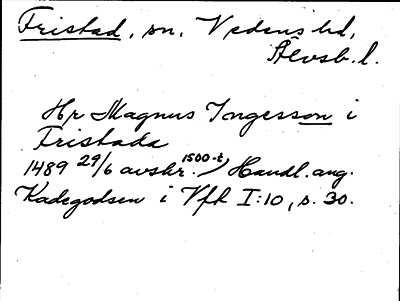 Fristad, sn, Vedens hd,
Älvsb. l.
Hr Magnus Ingesson i
Fristada
1489 29/6 avskr. 1500-t) Handl. ang.
Kadegodsen i Vfh I:10, s. 30.